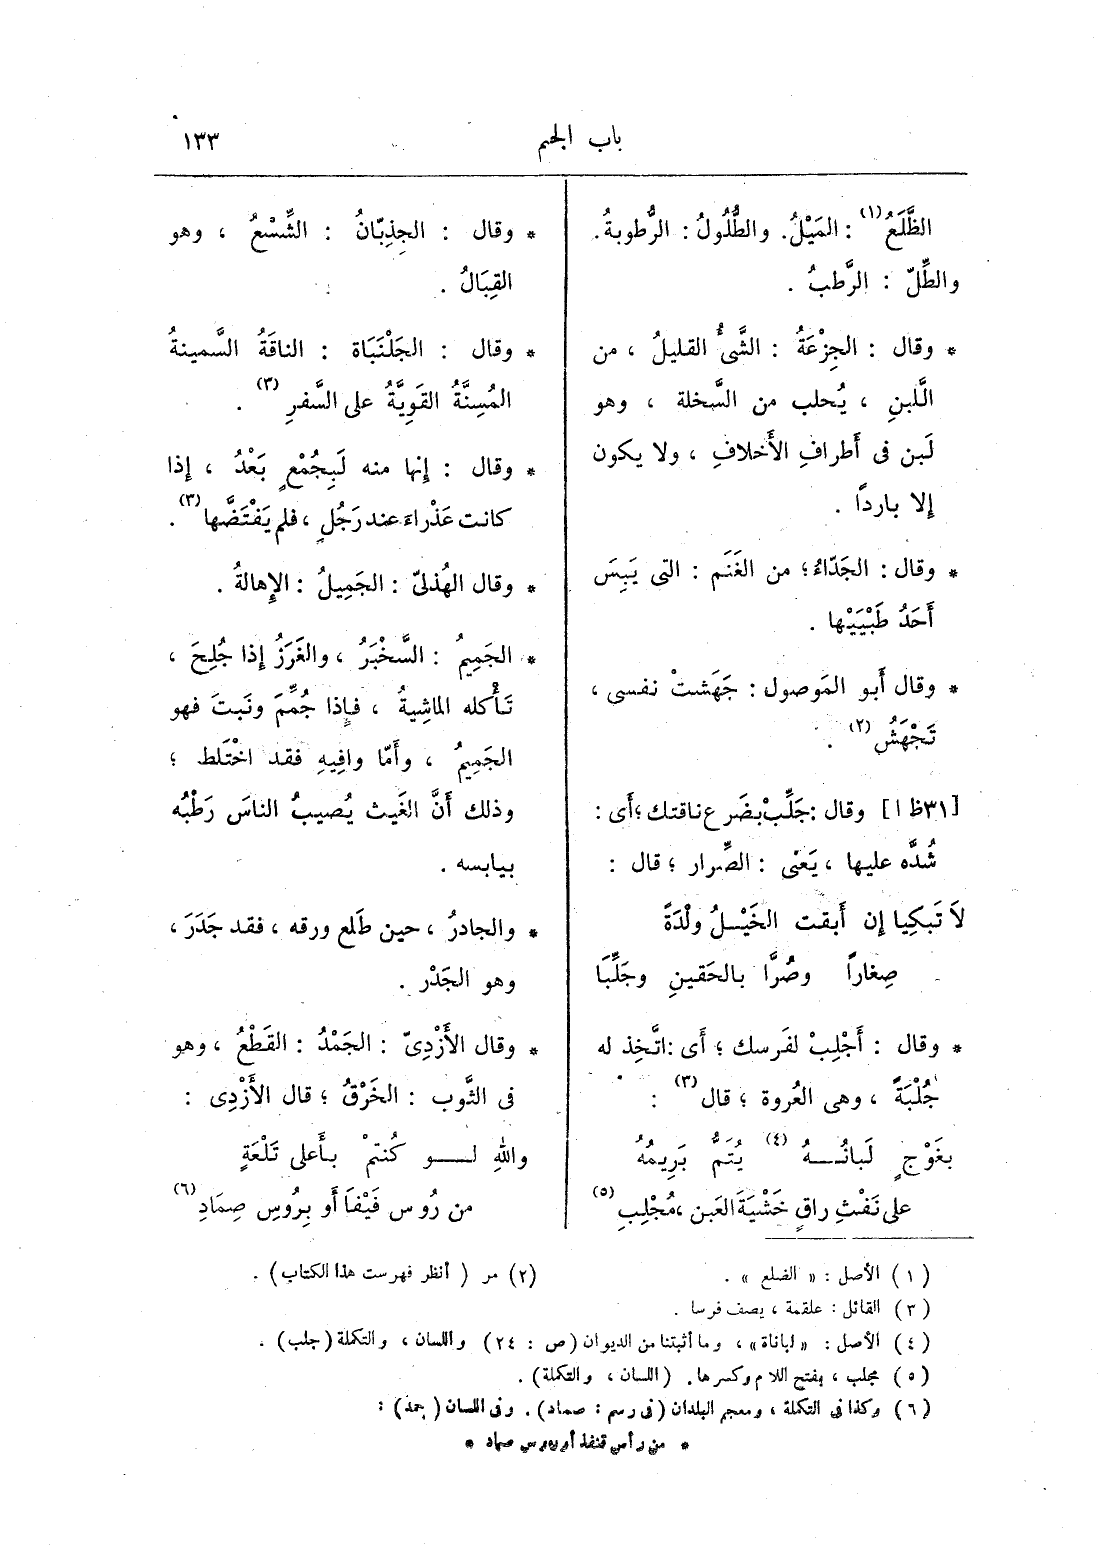 باب الجيم
١٣٣
الظَّلَعُ (١) : المَيْلُ. والطُّلُولُ : الرُّطوبةُ.
والطِّلّ : الرَّطبُ .
* وقال : الجِزْعَةُ : الشَّىُٔ القليلُ ، من
الَّلبنِ ، يُحلب من السَّخلة ، وهو
لَبن فى أطرافِ الأَخلافِ ، ولا يكون
إلا باردًا .
* وقال : الجَدّاءُ؛ من الغَنَم : التى يَبِسَ
أَحَدُ طَبْيَيْها .
* وقال أَبو المَوصول : جَهَشتْ نفسى ،
تَجْهَشُ (٢) .
[٣١ظ ا] وقال : جَلِّبْ بضَرع ناقتك ؛ أَى :
شُدَّه عليها ، يَعْنى : الصِّرار ؛ قال :
لاَ تَبكِيا إن أَبقت الخَيْلُ ولْدَةً
صِغاراً وصُرَّا بالحَقينِ وجَلِّبَا
* وقال : أَجْلِبْ لفَرسك ؛ أَى : اتَّخِذ له
جُلْبَةً ، وهى العُروة ؛ قال (٣) :
بغَوْجٍ لَبانُهُ (٤) يُتَمُّ بَرِيمُهُ
على نَفْثِ راقٍ خَشْيَةَ العَين ، مُجْلِبِ (٥)
* وقال : الجِذِبّانُ : الشِّسْعُ ، وهو
القِبَالُ .
* وقال : الجَلَنْبَاة : الناقَةُ السَّمينةُ
المُسِنَّةُ القَوِيَّةُ على السَّفرِ (٣) .
* وقال : إنها منه لَبِجُمْعٍ بَعْدُ ، إذا
كانت عَذْراءَ عند رَجُلٍ ، فلم يَفْتَضَّها (٣) .
* وقال الهُذلىّ : الجَمِيلُ : الإِهالةُ .
* الجَمِيمُ : السَّخْبَرُ ، والغَرَزُ إذا جُلِحَ ،
تَأْكله الماشِيةُ ، فإِذا جُمِّمَ ونَبتَ فهو
الجَمِيمُ ، وأَمّا وافِيهِ فقد اخْتَلط ؛
وذلك أَنَّ الغَيث يُصيبُ الناسَ رَطْبُه
بيابسه .
* والجادرُ ، حين طَلع ورقه ، فقد جَدَرَ ،
وهو الجَدْر .
* وقال الأَزْدِىّ : الجَمْدُ : القَطْعُ ، وهو
فى الثَّوب : الخَرْقُ ؛ قال الأَزْدِى :
واللهِ لــو كُنتمْ بأَعلى تَلْعَةٍ
من رُوس فَيْفَا أو بِرُوسِ صِمَادِ (٦)
(١) الأصل : « الضلع » .
(٢) مر ( أنظر فهرست هذا الكتاب ) .
(٣) القائل : علقمة ، يصف فرسا .
(٤) الأصل : « لباناة » ، وما أثبتنا من الديوان (ص : ٢٤) واللسان ، والتكملة (جلب) .
(٥) مجلب ، بفتح اللام وكسرها. (اللسان ، والتكملة) .
(٦) وكذا فى التكملة ، ومعجم البلدان (فى رسم : صماد) . وفى اللسان (جمد) :
* من رأس قنفذ أو رءوس صماد *